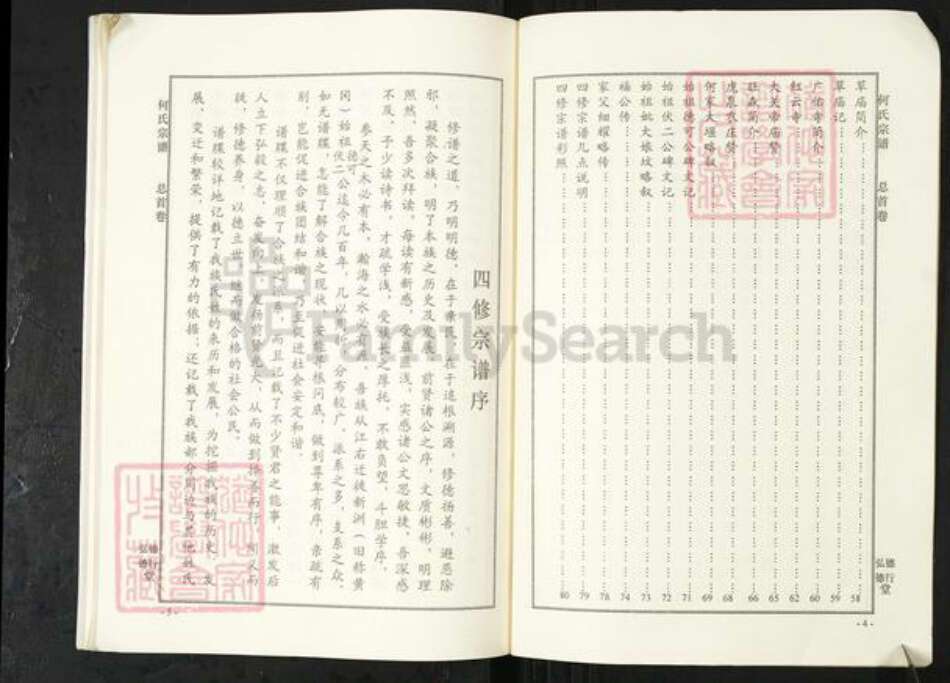 何氏宗谱
总首卷
德行堂
弘德
草庙简介 58
草庙记 59
广佑寺简介 60
红云寺 62
大关帝庙赞 65
旺森简介 66
虎泉农庄赞 68
何家大堰略叙 69
始祖德可公碑文记 71
始祖伏二公碑文记 72
始祖妣大娘坟略叙 73
福公传 74
家父细耀略传 78
四修宗谱几点说明 79
四修宗谱彩照 80
- 4 -
四修宗谱序
修谱之道，乃明明德，在于亲民，在于追根溯源，修德扬善，避恶除
邪，凝聚合族，明了本族之历史及发展。前贤诸公之序，文质彬彬，明理
照然，吾多次拜读，每读有新感，受益匪浅，实感诸公文思敏捷，吾深感
不及。予少读诗书，才疏学浅，受族长之厚托，不敢负望，斗胆学序。
参天之木必有本，瀚海之水必有源，吾族从江右迁徙新洲（旧称黄
冈）始祖德可伏二公迄今几百年，凡以周折，分布较广，派系之多，支系之众，
如无谱牒，怎能了解合族之现状，安能寻根问底，做到辈辈有序，亲疏有
别，岂能促进合族团结和谐，乃至促进社会安定和谐。
谱牒不仅理顺了合族之关系，而且记载了不少贤君之能事，激发后
人立下弘毅之志，奋发向上，发扬前贤光大，从而做到择善而行，闻义而
跃，修德养身，以德立世，继而聚合格的社会公民。
谱牒较详地记载了我族氏族的来历和发展，为挖掘我族的历史，发
展、变迁和繁荣，提供了有力的依据；还记载了我族部分周边与其他姓氏
何氏宗谱
总首卷
德行堂
弘德
- 5 -
FamilySearch